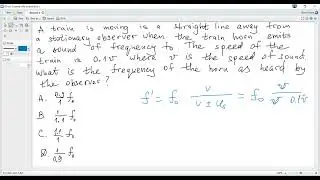 A train is moving is a straight line away from
a stationary observer when the train horn emits
a sound of frequency fo. The speed of the
train is 0.1v where v is the speed of sound.
What is the frequency of the horn as heard by
the observer?
A. 0.9/1 fo
B. 1/1.1 fo
C. 1.1/1 fo
D. 1/0.9 fo
f' = fo v/(v ± us) = fo v/(v 0.1v